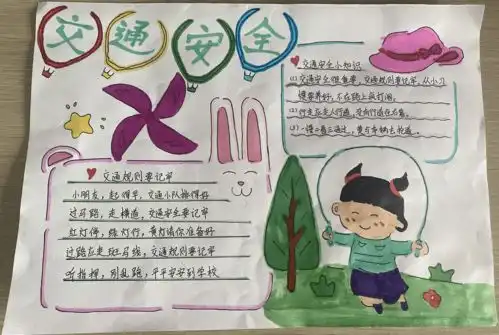 交通安全
交通安全小知识
(1) 交通安全很重要，交通规则要记牢，从小习
惯要养好，不在路上疯打闹。
(2) 行走应走人行道，没有行道往右靠。
(3) 一慢二看三通过，莫与车辆去抢道。
交通规则要记牢
小朋友，起得早，交通小队排得好
过马路，走横道，交通安全要记牢
红灯停，绿灯行，黄灯请你准备好
过路应走斑马线，交通规则要记牢
听指挥，别乱跑，平平安安到学校